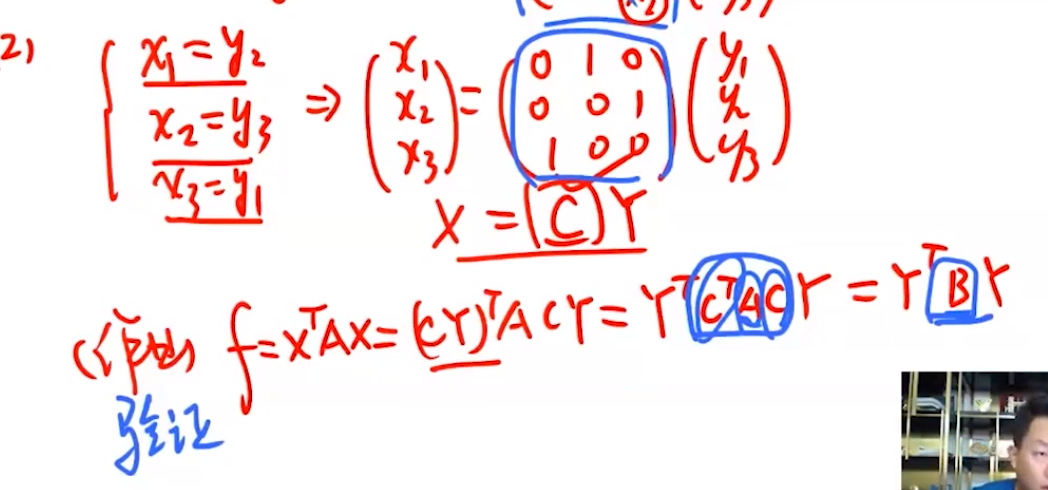 2)
x₁ = y₂
x₂ = y₃ ⇒ (x₁ x₂ x₃) = (0 1 0
0 0 1
1 0 0) (y₁ y₂ y₃)
x₃ = y₁
X = (C) Y
f = XᵀAX = (CY)ᵀACY = YᵀCᵀACY = YᵀBY
验证